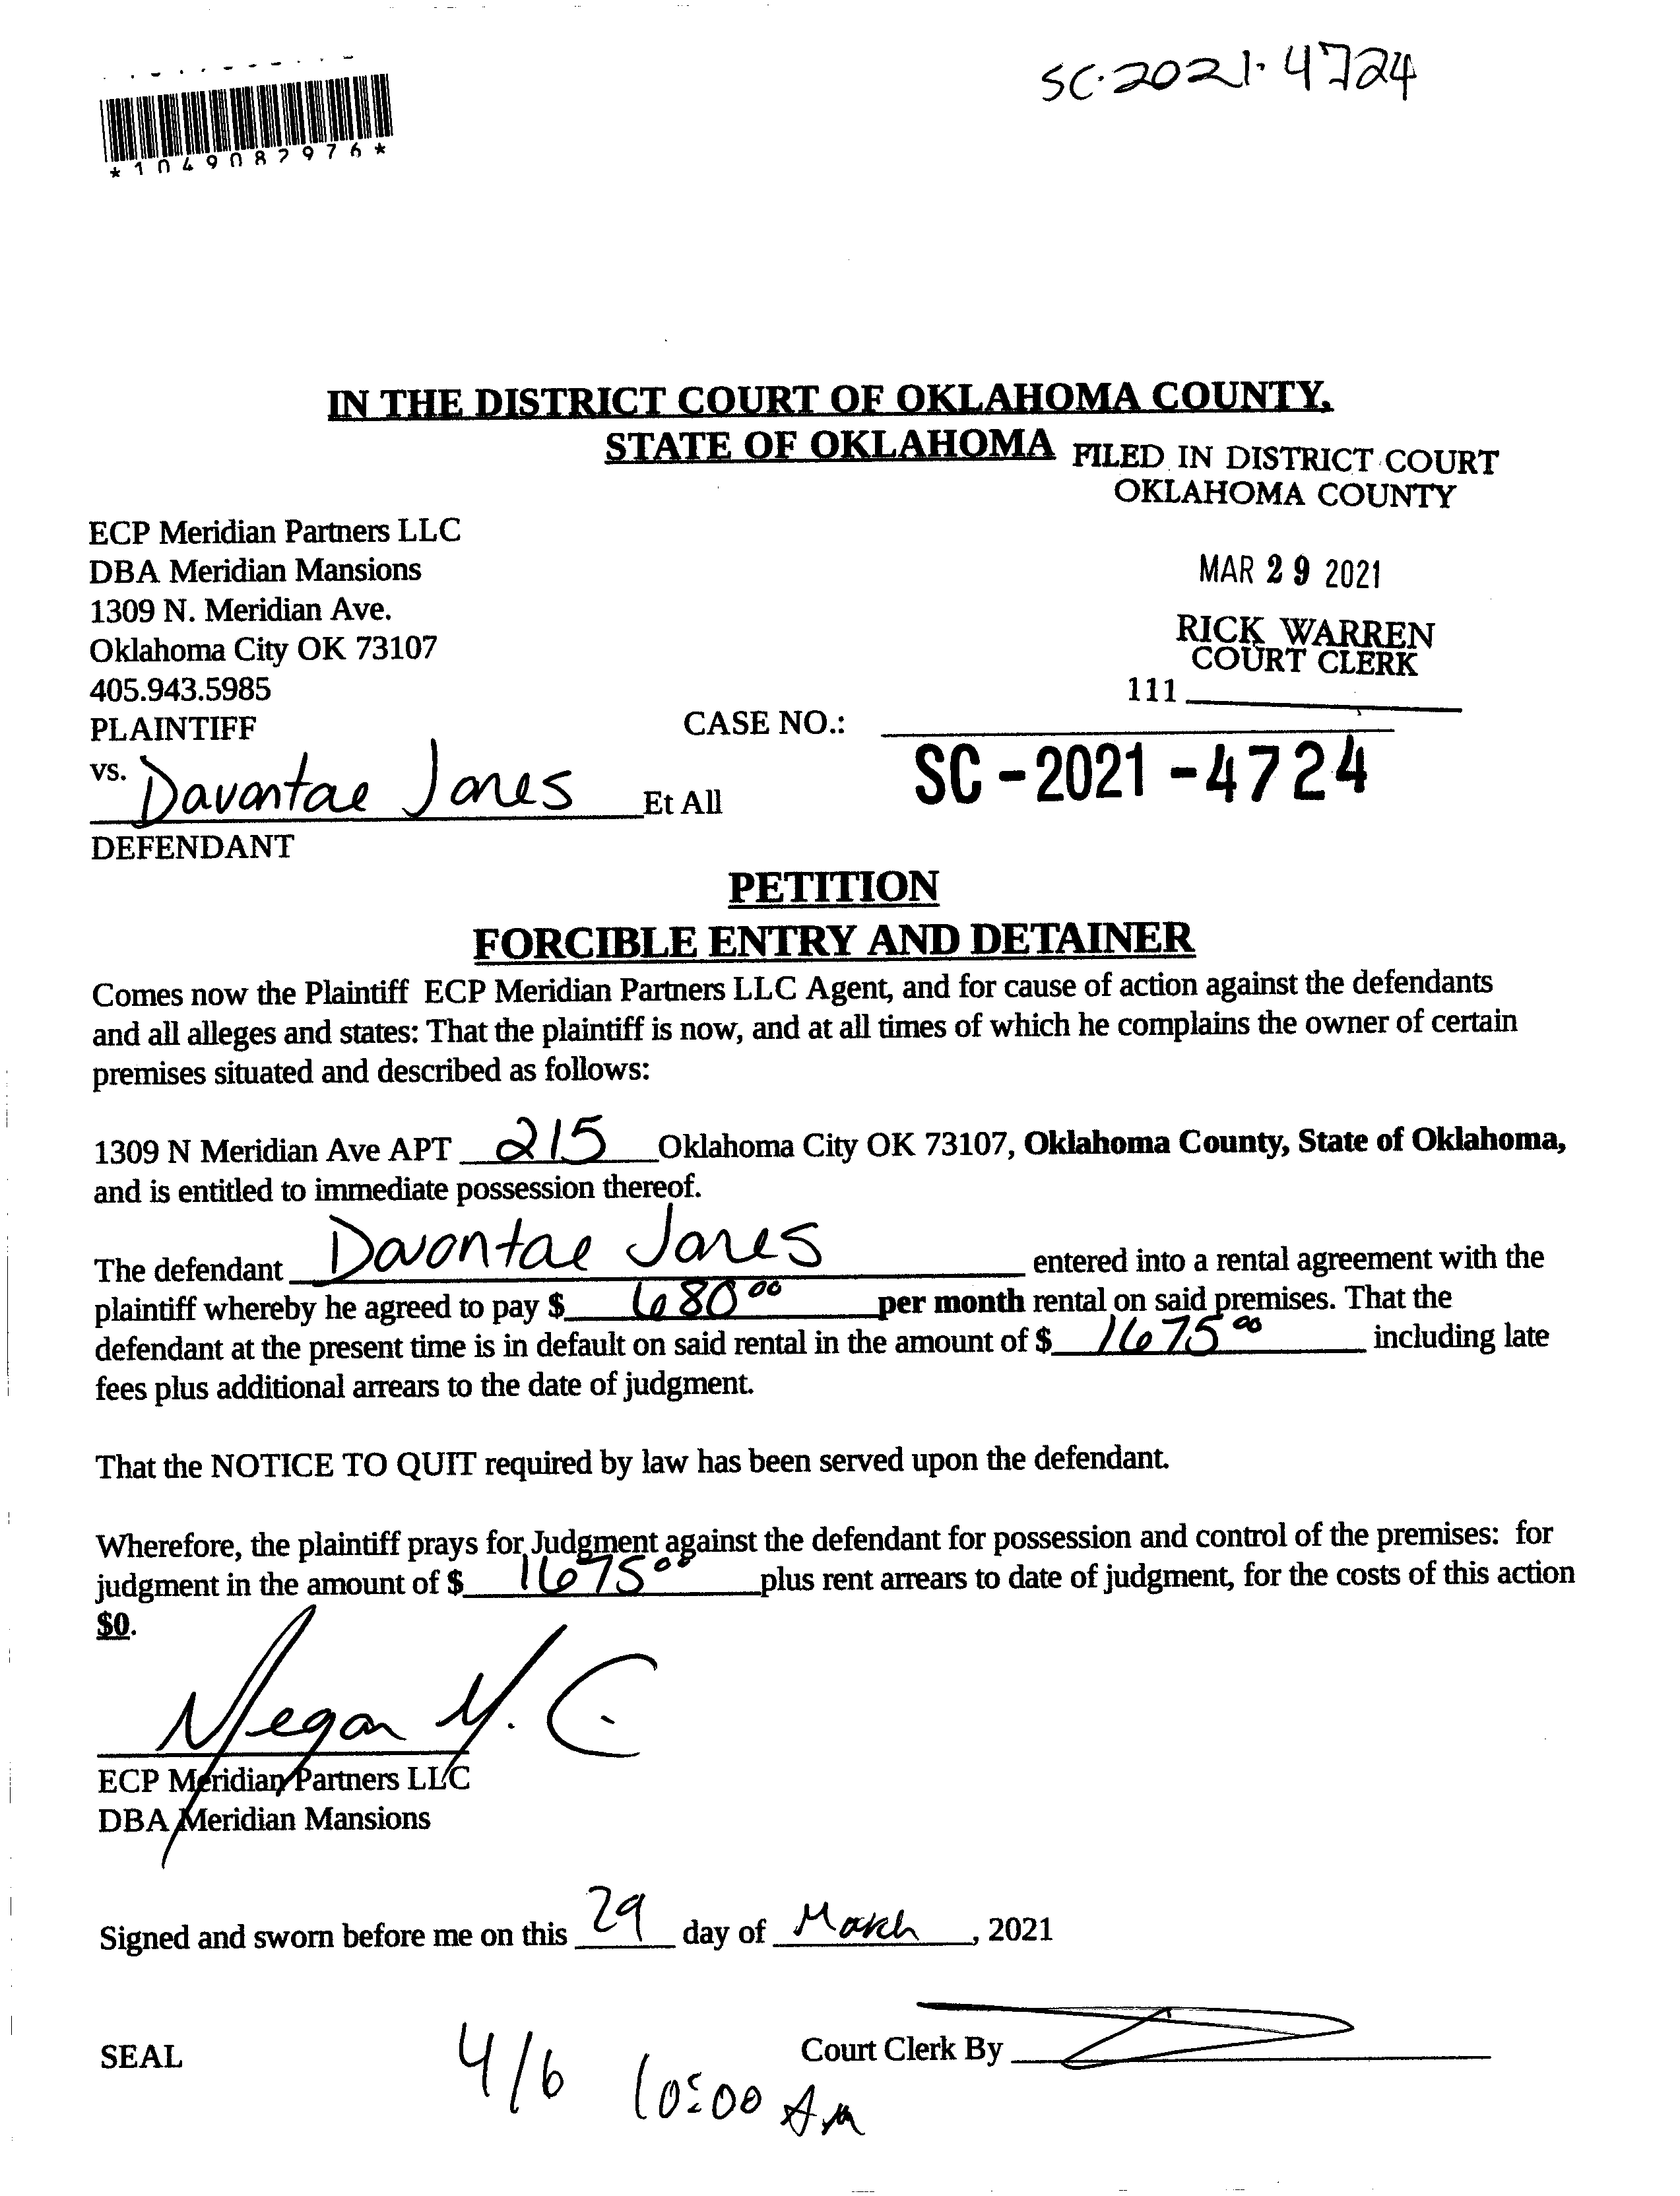 SC-2021-4724
*1049082976*
IN THE DISTRICT COURT OF OKLAHOMA COUNTY,
STATE OF OKLAHOMA
FILED IN DISTRICT COURT
OKLAHOMA COUNTY
MAR 29 2021
RICK WARREN
COURT CLERK
111
ECP Meridian Partners LLC
DBA Meridian Mansions
1309 N. Meridian Ave.
Oklahoma City OK 73107
405.943.5985
PLAINTIFF
CASE NO.:
SC-2021-4724
vs. Davontae Jones Et All
DEFENDANT
PETITION
FORCIBLE ENTRY AND DETAINER
Comes now the Plaintiff ECP Meridian Partners LLC Agent, and for cause of action against the defendants
and all alleges and states: That the plaintiff is now, and at all times of which he complains the owner of certain
premises situated and described as follows:
1309 N Meridian Ave APT 215 Oklahoma City OK 73107, Oklahoma County, State of Oklahoma,
and is entitled to immediate possession thereof.
The defendant Davontae Jones entered into a rental agreement with the
plaintiff whereby he agreed to pay $ 680 00 per month rental on said premises. That the
defendant at the present time is in default on said rental in the amount of $ 1675 00 including late
fees plus additional arrears to the date of judgment.
That the NOTICE TO QUIT required by law has been served upon the defendant.
Wherefore, the plaintiff prays for Judgment against the defendant for possession and control of the premises: for
judgment in the amount of $ 1675 00 plus rent arrears to date of judgment, for the costs of this action
$0.
Megan M. C.
ECP Meridian Partners LLC
DBA Meridian Mansions
Signed and sworn before me on this 29 day of March, 2021
SEAL
Court Clerk By
4/6 10:00 AM